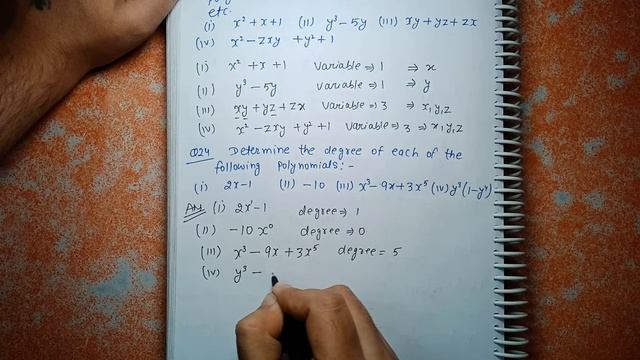 etc.
(i) x² + x + 1 (ii) y³ - 5y (iii) xy + yz + zx
(iv) x² - zxy + y² + 1
(i) x² + x + 1 Variable ⇒ 1 ⇒ x
(ii) y³ - 5y Variable ⇒ 1 ⇒ y
(iii) xy + yz + zx Variable ⇒ 3 ⇒ x, y, z
(iv) x² - zxy + y² + 1 Variable ⇒ 3 ⇒ x, y, z
Q24 Determine the degree of each of the
following Polynomials:-
(i) 2x-1 (ii) -10 (iii) x³ - 9x + 3x⁵ (iv) y³(1-y⁴)
Ans (i) 2x¹-1 degree ⇒ 1
(ii) -10x⁰ degree ⇒ 0
(iii) x³ - 9x + 3x⁵ degree = 5
(iv) y³ -